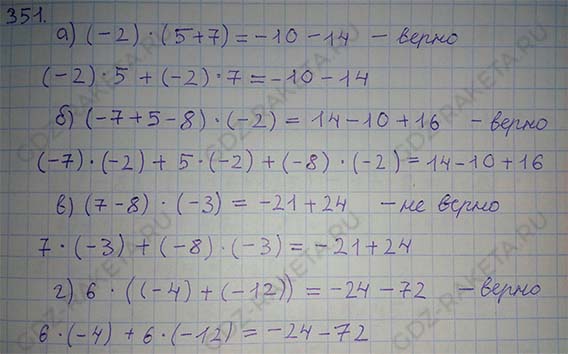 351.
а) (-2) · (5+7) = -10 - 14 - верно
(-2) · 5 + (-2) · 7 = -10 - 14
б) (-7 + 5 - 8) · (-2) = 14 - 10 + 16 - верно
(-7) · (-2) + 5 · (-2) + (-8) · (-2) = 14 - 10 + 16
в) (7 - 8) · (-3) = -21 + 24 - не верно
7 · (-3) + (-8) · (-3) = -21 + 24
г) 6 · ((-4) + (-12)) = -24 - 72 - верно
6 · (-4) + 6 · (-12) = -24 - 72
GDZ-RAKETA.RU